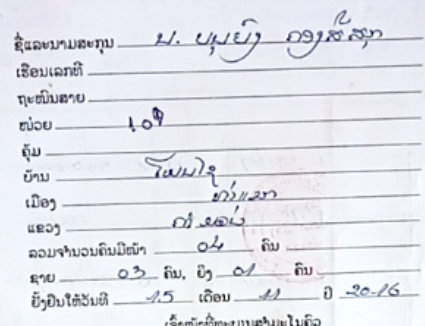 ຊື່ແລະນາມສະກຸນ ນ. ບຸນຍົງ
ເຮືອນເລກທີ
ຖະໜົນສາຍ
ໜ່ວຍ 10
ຄຸ້ມ
ບ້ານ ໂພນໄຊ
ເມືອງ ທ່າແຂກ
ແຂວງ ຄຳມ່ວນ
ລວມຈຳນວນຄົນມີໜ້າ 04 ຄົນ
ຊາຍ 03 ຄົນ, ຍິງ 01 ຄົນ
ຢັ້ງຢືນໃຫ້ວັນທີ 15 ເດືອນ 11 ປີ 2016